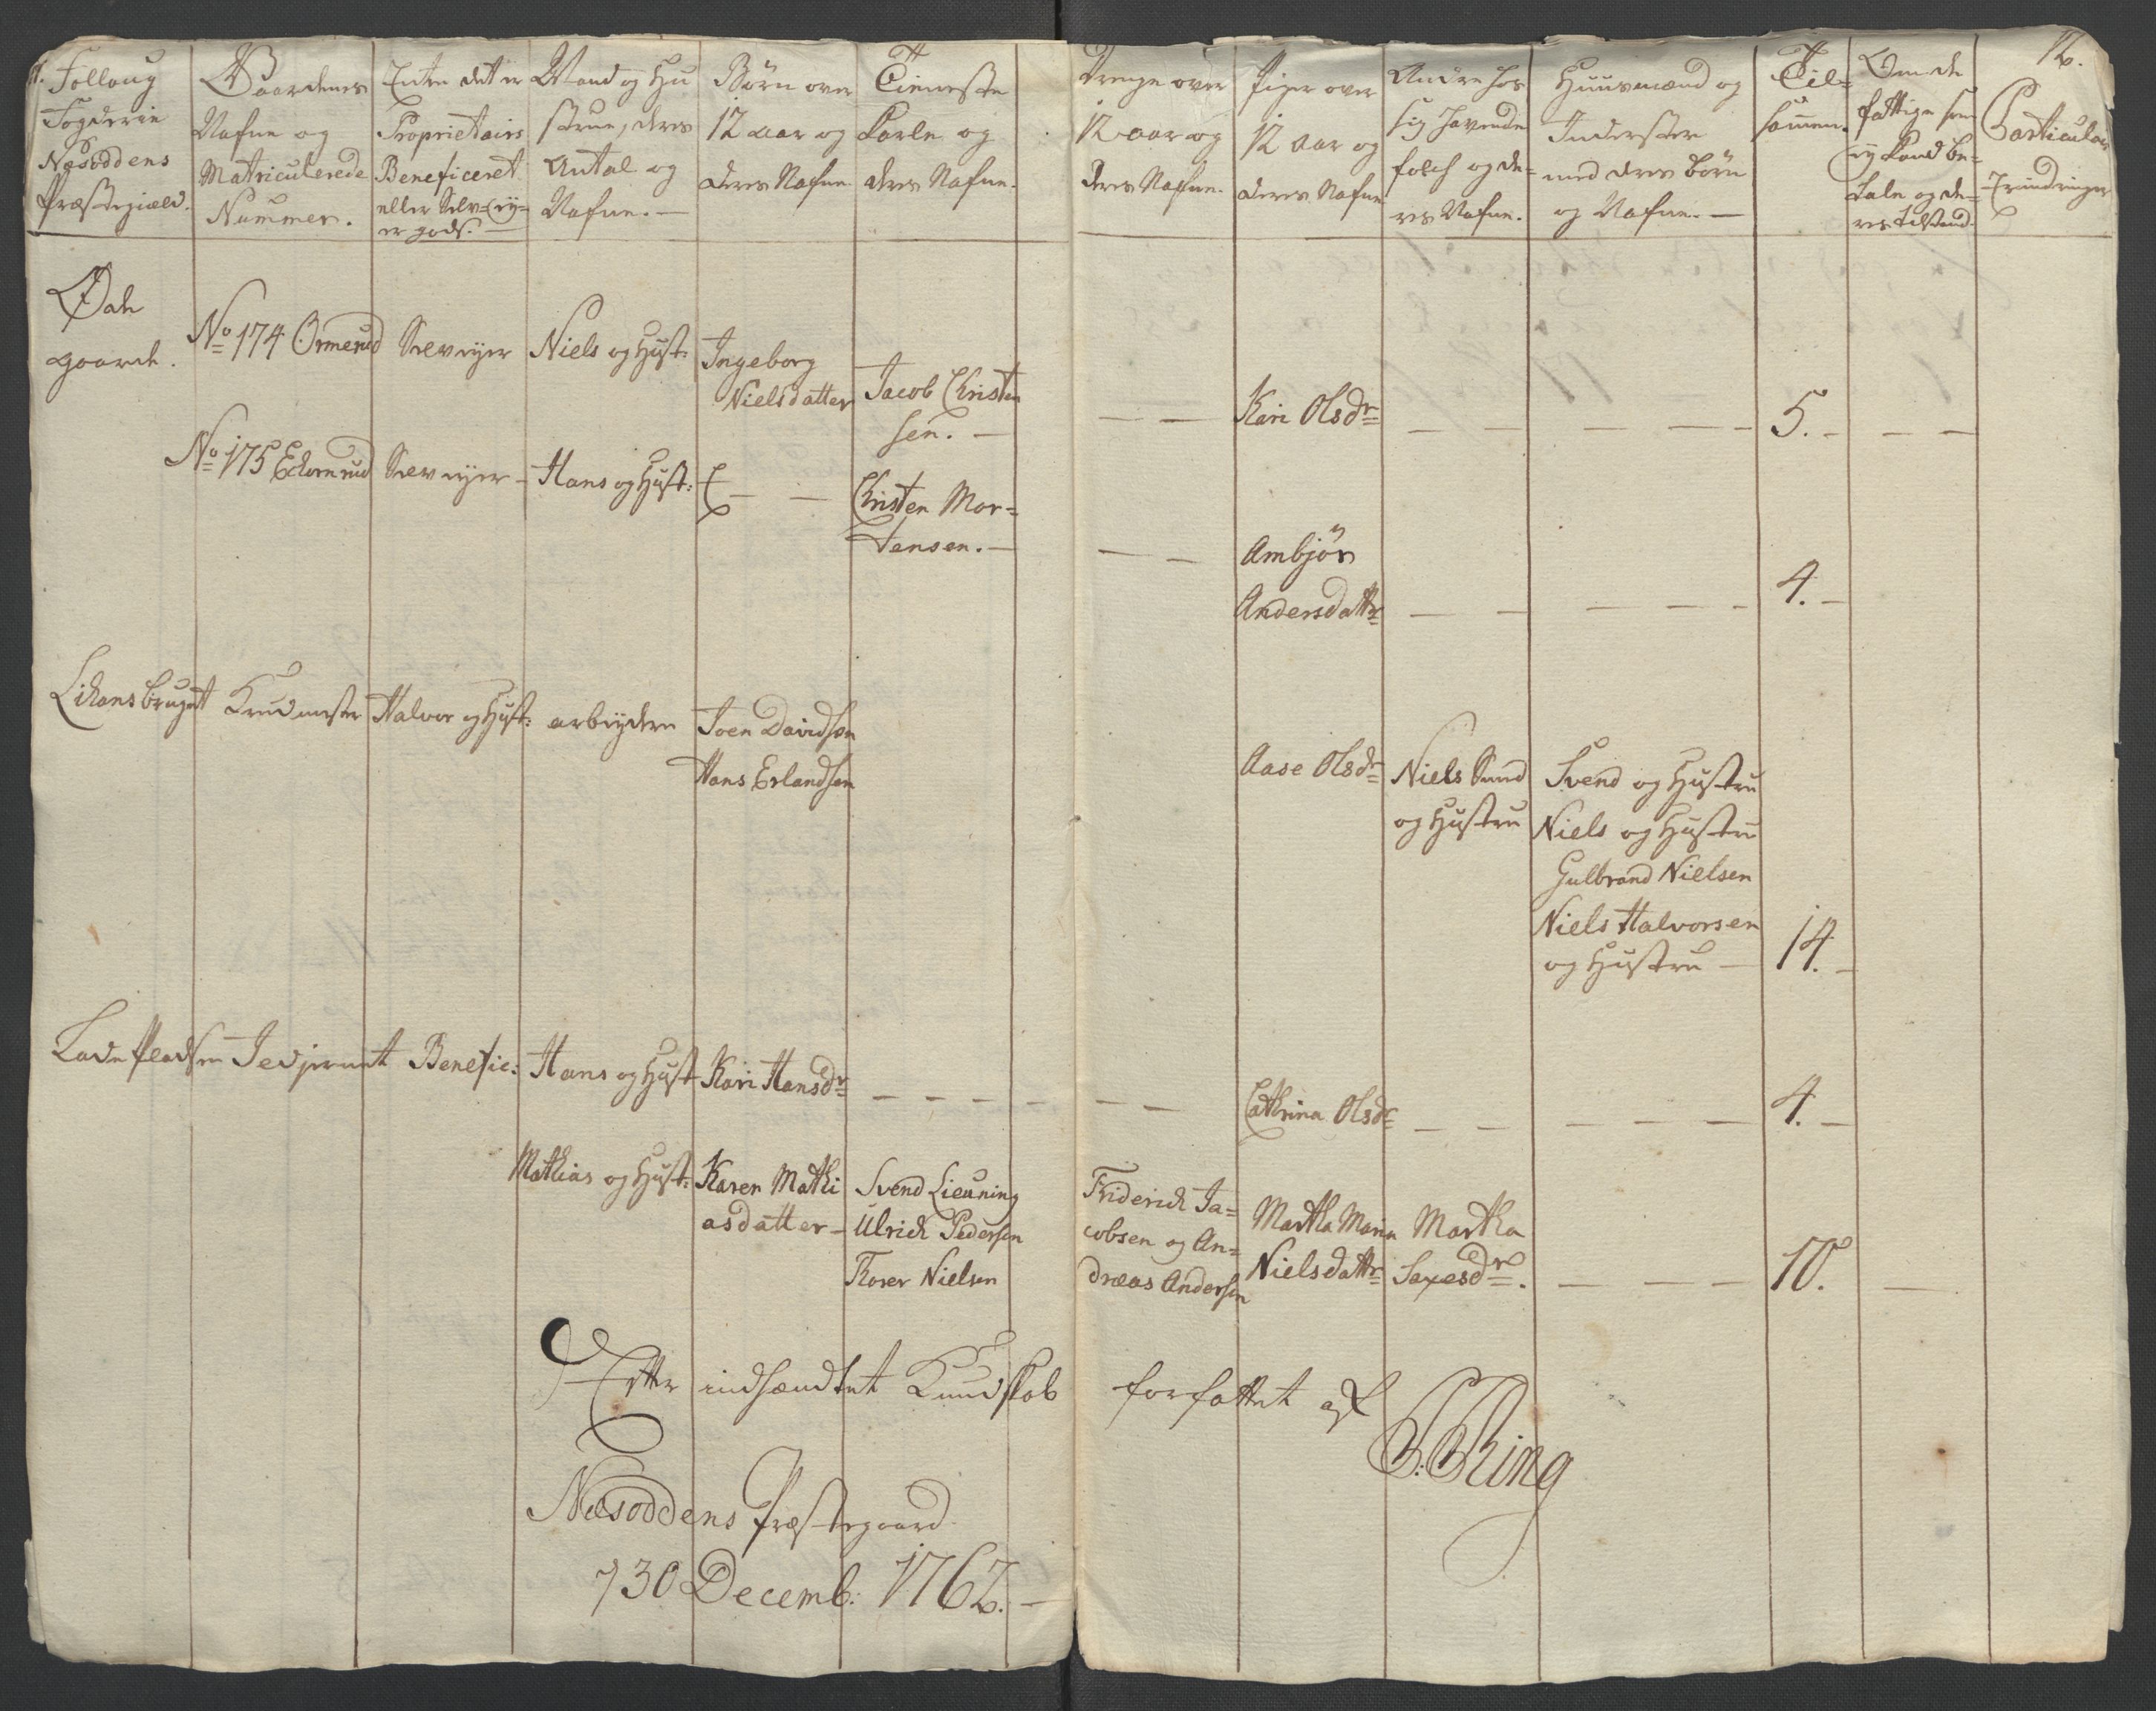 Folloug
Fogderie
Næsoddens
Præstegiæld.
Gaardenes
Nafne og
Matriculerede
Nummer.
Enten det er
Proprietairs
Beneficeret
eller Selv Eÿ-
er gods.
Mand og Hu
strue, deres
Antal og
Nafne. —
Børn over
12 aar og
deres Nafne.
Tieneste
Karle og
deres Nafne.
Drenge over
12 aar og
deres Nafne.
Piger over
12 aar og
deres Nafne
Andre hos
sig havende
folch og de-
res Nafne.
Huusmænd og
Inderster
med deres børn
og Nafne. —
Til-
samen.
Om de
fattige som
eÿ kand be-
tale og de-
res tilstand.
12.
Particulair
Erindringer
Øde
gaarde.
No 174 Ormerud Selveÿer Niels og Hust: Ingeborg
Nielsdatter
Jacob Christen
sen. —
— — Kari Olsdr — — — — — 5. — — —
No 175 Echornrud Selveÿer — Hans og Hust: — — Christen Mor-
tensen. —
— — Ambjør
Andersdattr — — — — — 4. —
Krudmester Halvor og Hust: arbeÿdere Joen Davidsen
Hans Erlandsen
Aase Olsdr Niels Smed
og Hustru
Svend og Hustru
Niels og Hustru
Gulbrand Nielsen
Niels Halvorsen
og Hustru — 14. —
Ladepladsen Benefic: Hans og Hust Kari Hansdr — — — —
— — Cathrina Olsdr — — — — — 4. —
Mathias og Hust: Karen Mathi
asdatter —
Svend
Ulrich Pedersen
Thorer Nielsen
Friderich Ja-
cobsen og An-
dreas Andersen
Martha Maria
Nielsdattr
Martha
Saxesdr. — — — 10. —
Efter indsændtet Kundskab forfattet af
Næsoddens Præstegaard
d 30 Decemb: 1762. —
Ring